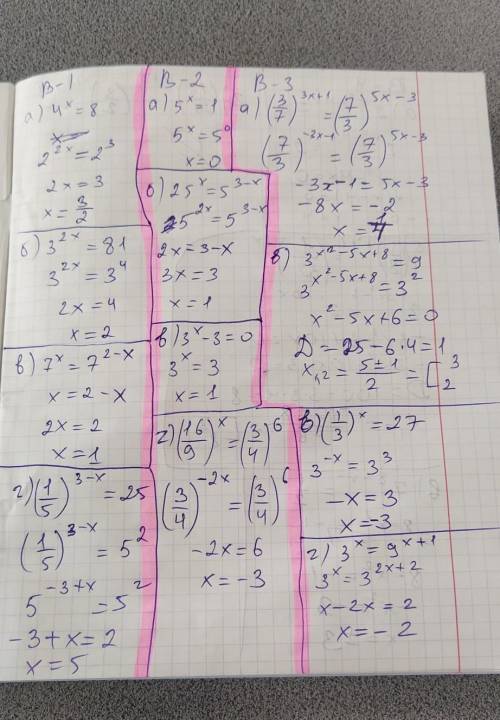 В-1
а) 4^x = 8
2^{2x} = 2^3
2x = 3
x = 3/2
б) 3^{2x} = 81
3^{2x} = 3^4
2x = 4
x = 2
в) 7^x = 7^{2-x}
x = 2 - x
2x = 2
x = 1
г) (1/5)^{3-x} = 25
(1/5)^{3-x} = 5^2
5^{-3+x} = 5^2
-3 + x = 2
x = 5
В-2
а) 5^x = 1
5^x = 5^0
x = 0
б) 25^x = 5^{3-x}
5^{2x} = 5^{3-x}
2x = 3 - x
3x = 3
x = 1
в) 3^x - 3 = 0
3^x = 3
x = 1
г) (16/9)^x = (3/4)^6
(3/4)^{-2x} = (3/4)^6
-2x = 6
x = -3
В-3
а) (3/7)^{3x+1} = (7/3)^{5x-3}
(7/3)^{-3x-1} = (7/3)^{5x-3}
-3x - 1 = 5x - 3
-8x = -2
x = 1/4
б) 3^{x^2-5x+8} = 9
3^{x^2-5x+8} = 3^2
x^2 - 5x + 6 = 0
Д = 25 - 6·4 = 1
x_{1,2} = (5±1)/2 = [3 2
в) (1/3)^x = 27
3^{-x} = 3^3
-x = 3
x = -3
г) 3^x = 9^{x+1}
3^x = 3^{2x+2}
x - 2x = 2
x = -2